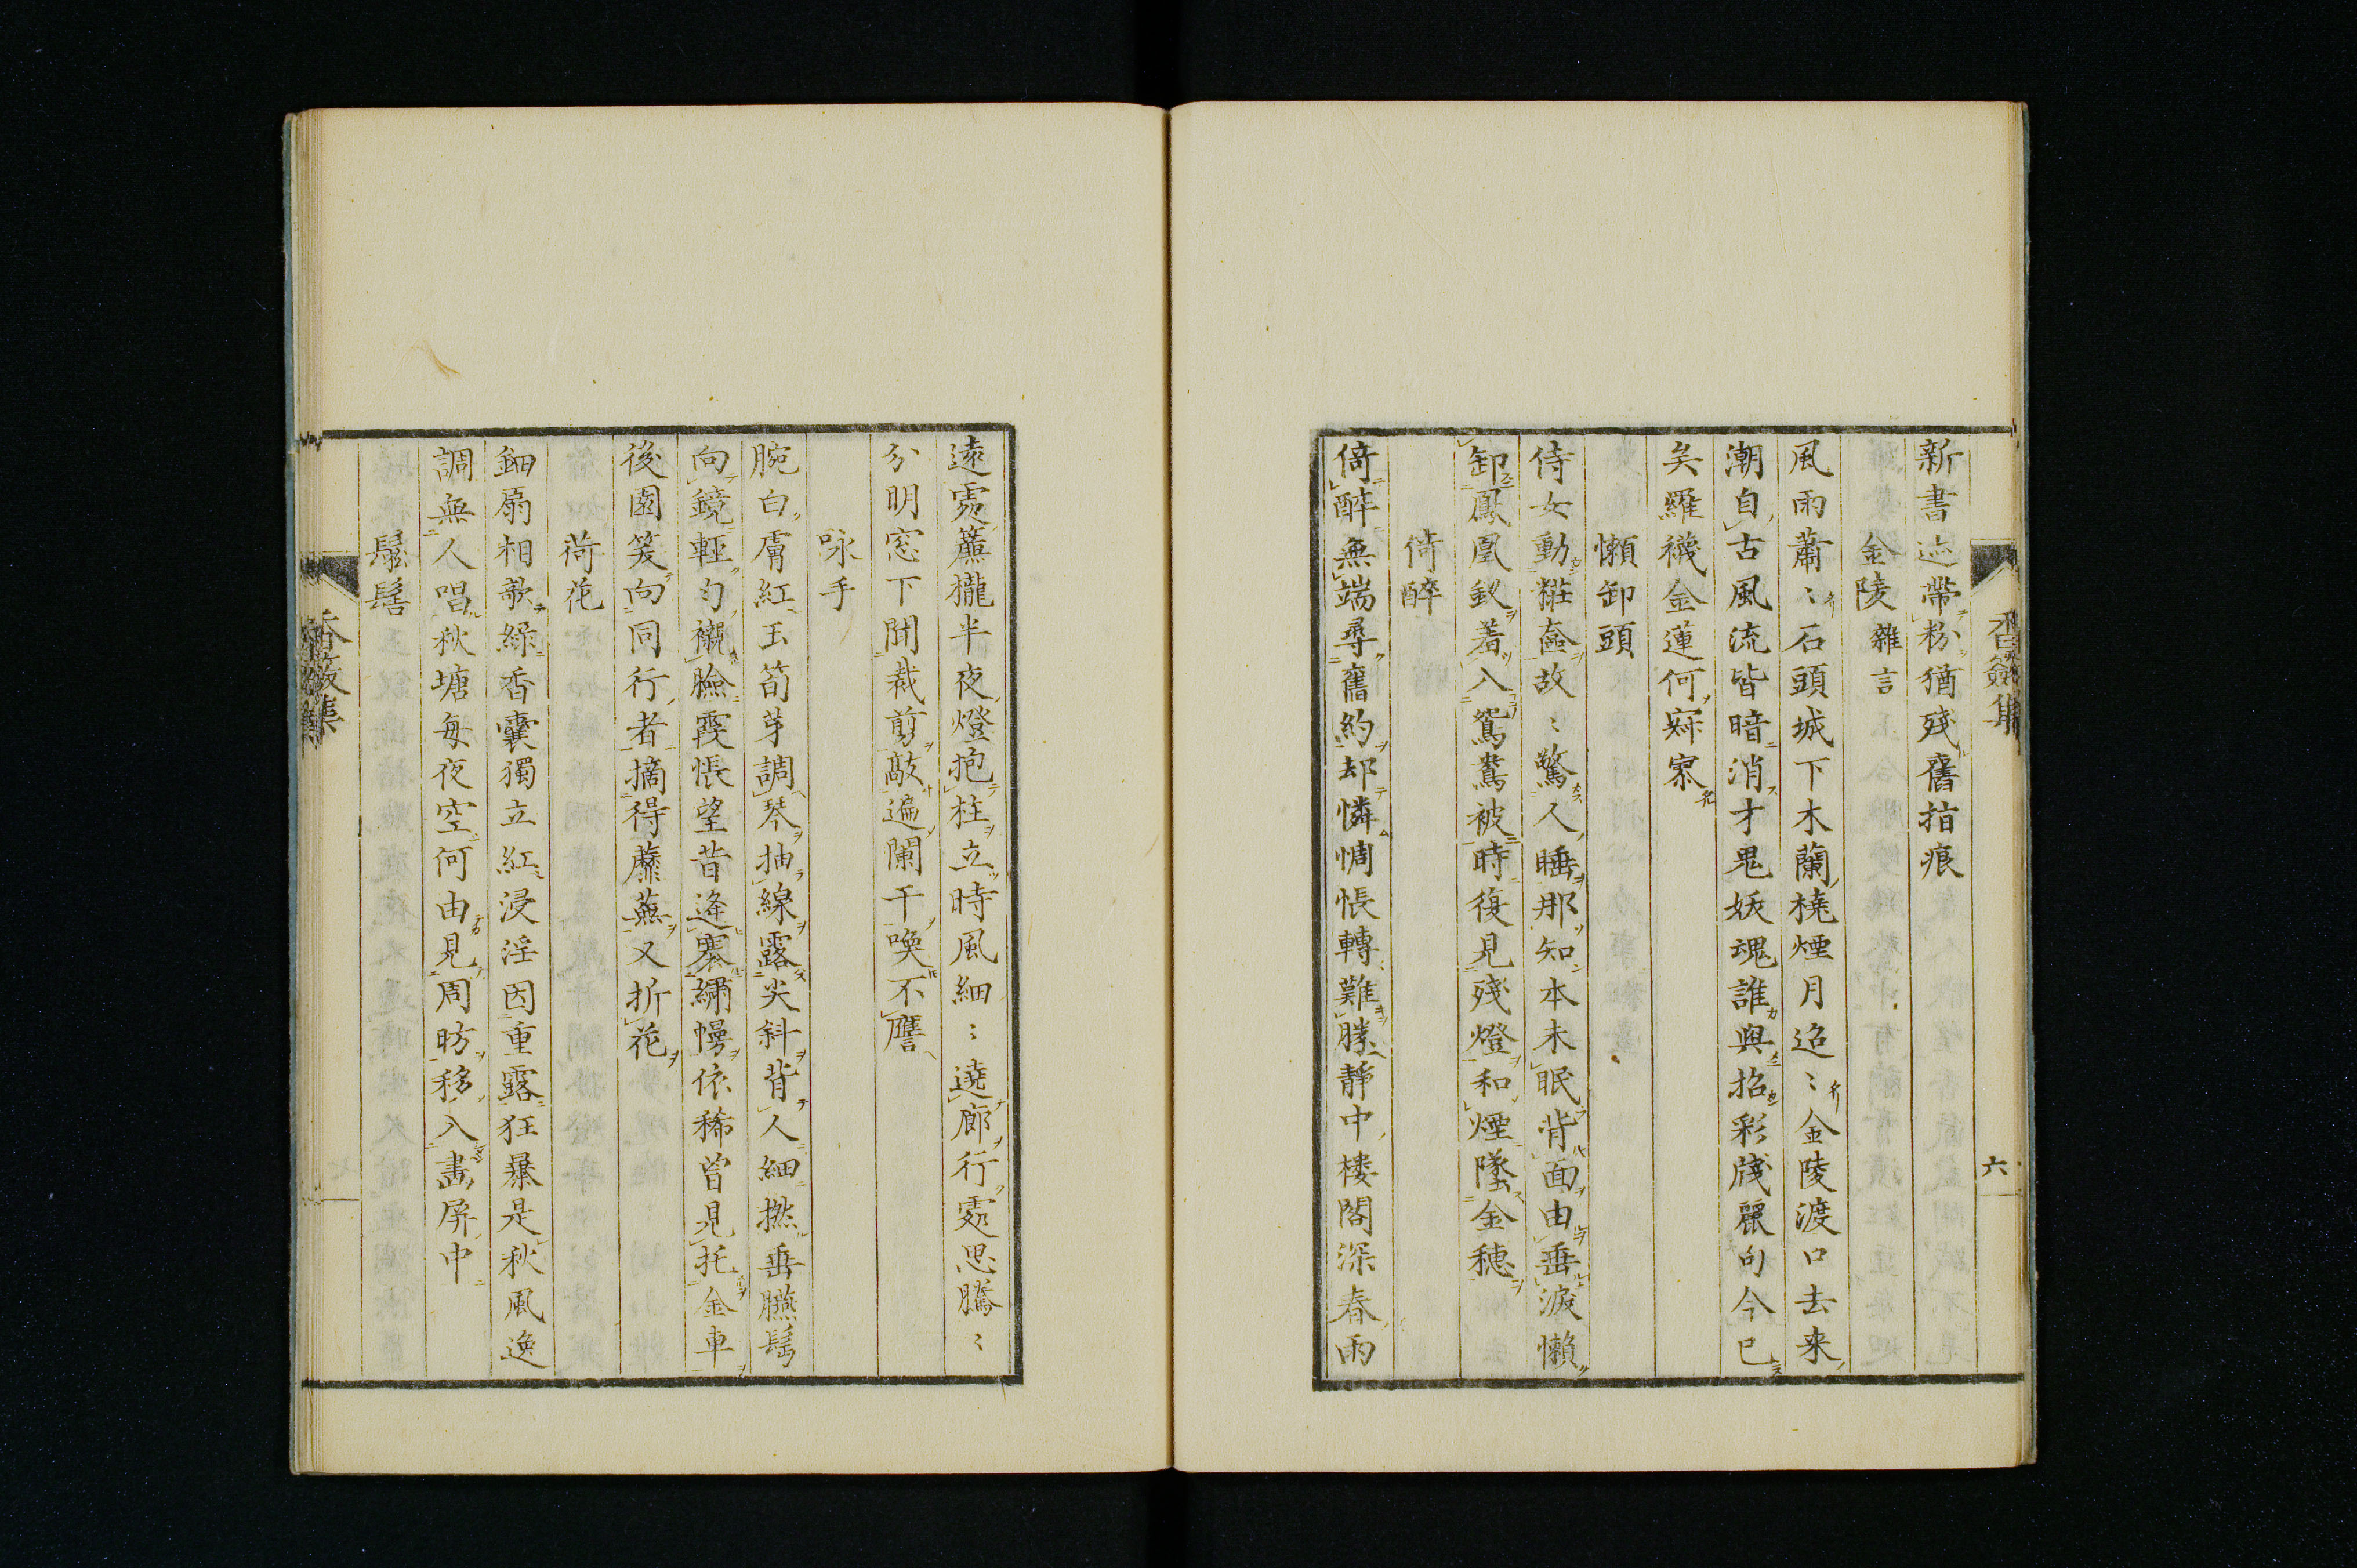 新書迹帶粉猶殘舊指痕
金陵雜言
風雨蕭〻石頭城下木蘭橈煙月迢〻金陵渡口去来
潮自古風流皆暗消才鬼妖魂誰與招彩牋麗句今已
矣羅襪金蓮何寂寥
懶卸頭
侍女動糚奩故〻驚人睡那知本未眠背面由垂淚懶
卸鳳凰釵羞入鴛鴦被時復見殘燈和煙墜金穗
倚醉
倚醉無端尋舊約却憐惆悵轉難勝靜中樓閣深春雨
香奩集
六
遠處簾櫳半夜燈抱柱立時風細〻遶廊行處思騰〻
分明窓下聞裁剪敲遍闌干喚不譍
咏手
腕白膚紅玉筍芽調琴抽線露尖斜背人細撚垂臙鬂
向鏡輕勻襯臉霞悵望昔逢褰繡幔依稀曾見托金車
後園笑向同行者摘得蘼蕪又折花
荷花
鈿扇相歌綠香囊獨立紅浸淫因重露狂暴是秋風逸
調無人唱秋塘每夜空何由見周昉移入畵屏中
鬆髻
香奩集